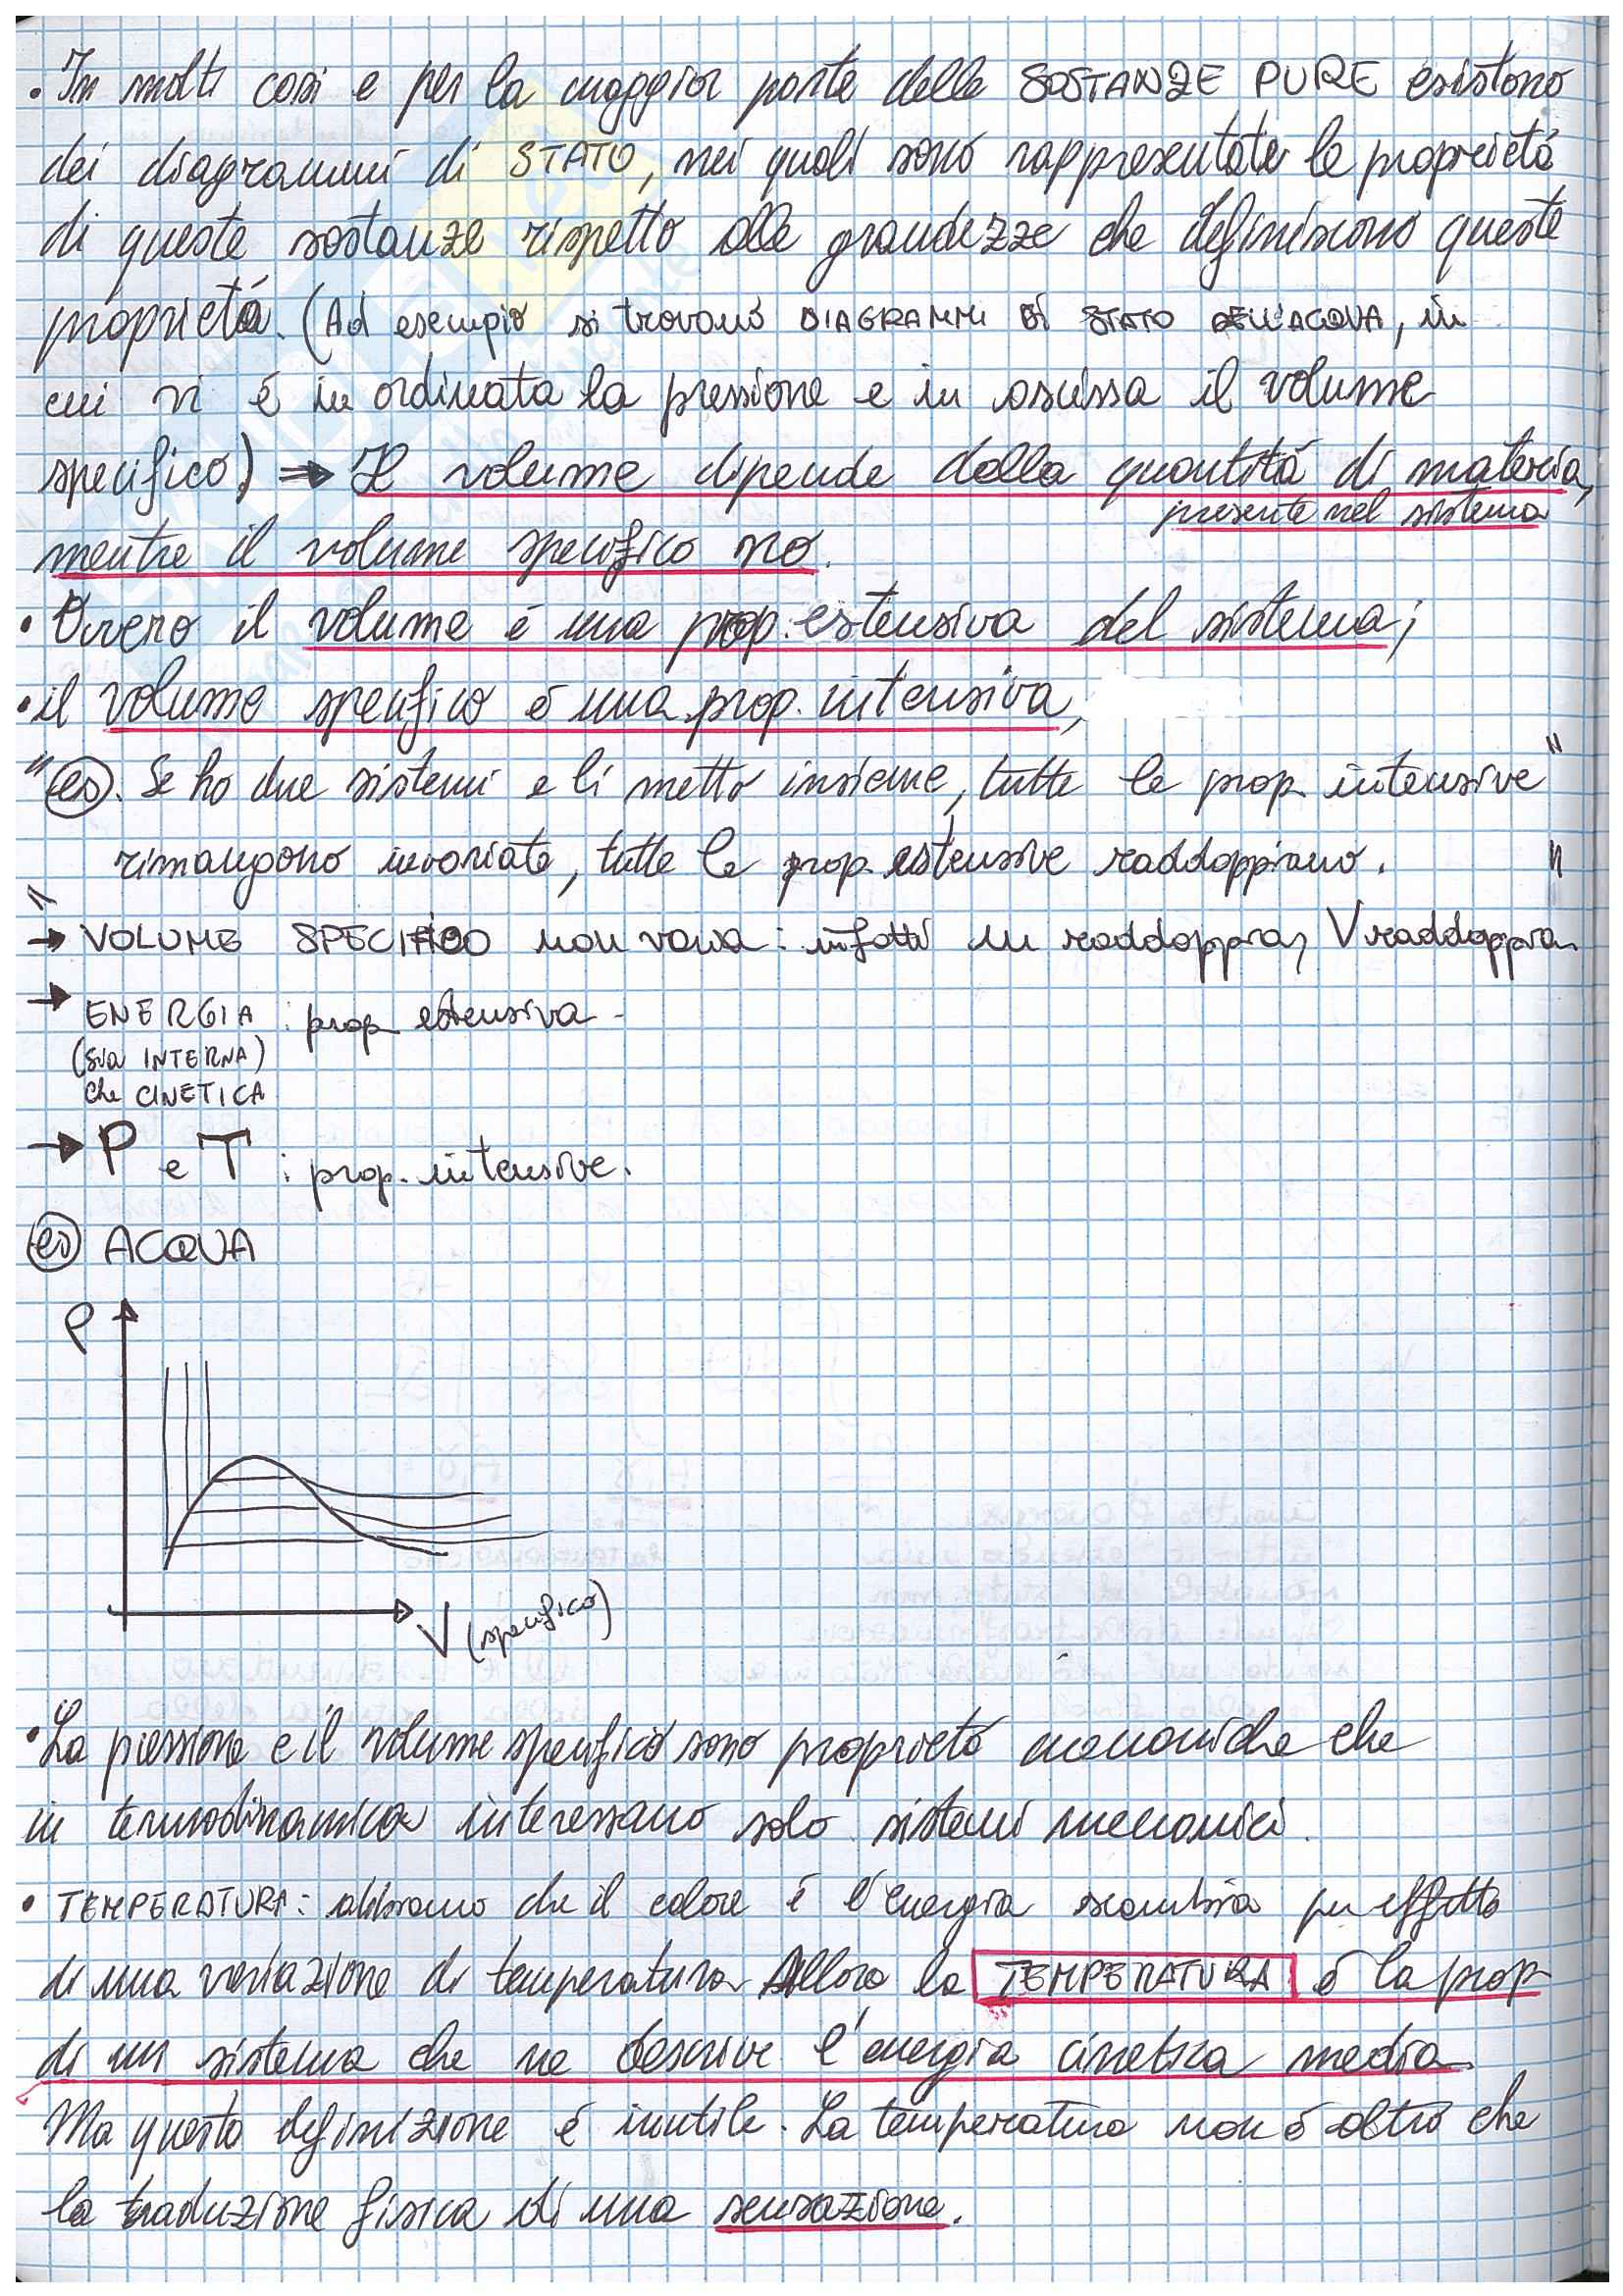 • In molti casi e per la maggior parte delle SOSTANZE PURE esistono
dei diagrammi di STATO, nei quali sono rappresentate le proprietà
di queste sostanze rispetto alle grandezze che definiscono queste
proprietà. (Ad esempio si trovano DIAGRAMMI DI STATO DELL'ACQUA, in
cui vi è in ordinata la pressione e in ascissa il volume
specifico) ⇒ Il volume dipende dalla quantità di materia,
presente nel sistema
mentre il volume specifico no.
• Ovvero il volume è una prop. estensiva del sistema;
• il volume specifico è una prop. intensiva,
" es. Se ho due sistemi e li metto insieme, tutte le prop. intensive "
rimangono invariate, tutte le prop. estensive raddoppiano. "
→ VOLUME SPECIFICO non varia: infatti m raddoppia, V raddoppia
→ ENERGIA : prop. estensiva -
(sia INTERNA)
che CINETICA
→ P e T : prop. intensive.
es ACQUA
P
V (specifico)
• La pressione e il volume specifico sono proprietà meccaniche che
in termodinamica interessano solo sistemi meccanici.
• TEMPERATURA: abbiamo che il calore è l'energia scambia per effetto
di una variazione di temperatura. Allora la TEMPERATURA è la prop
di un sistema che ne descrive l'energia cinetica media.
Ma questa definizione è inutile. La temperatura non è altro che
la traduzione fisica di una sensazione.